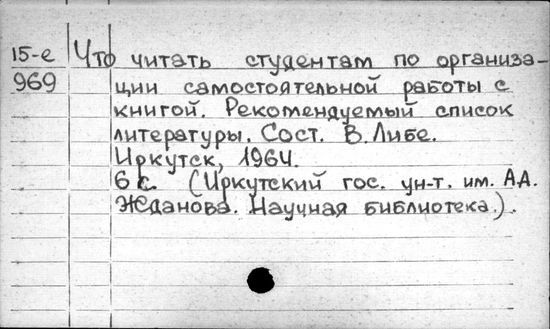 15-е
969
Что читать студентам по организа-
ции самостоятельной работы с
книгой. Рекомендуемый список
литературы. Сост. В. Либе.
Иркутск, 1964.
6 с. (Иркутский гос. ун-т. им. А.А.
Жданова. Научная библиотека.).